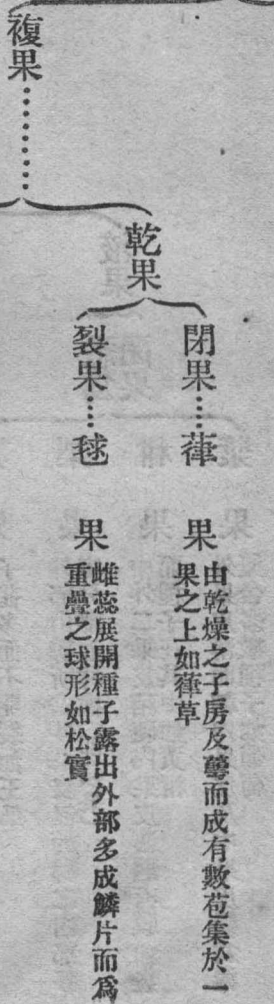 複果………
乾果
閉果……葎果
由乾燥之子房及蕚而成有數苞集於一
果之上如葎草
裂果……毬果
雌蕊展開種子露出外部多成鱗片而爲
重疊之球形如松實